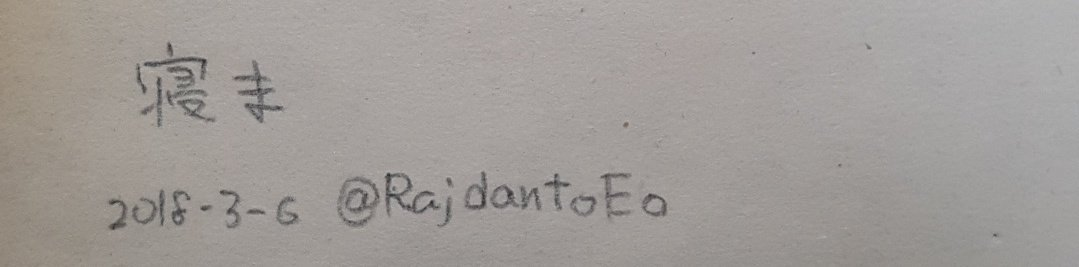 寝ま
2018-3-6 @RajdantoEo